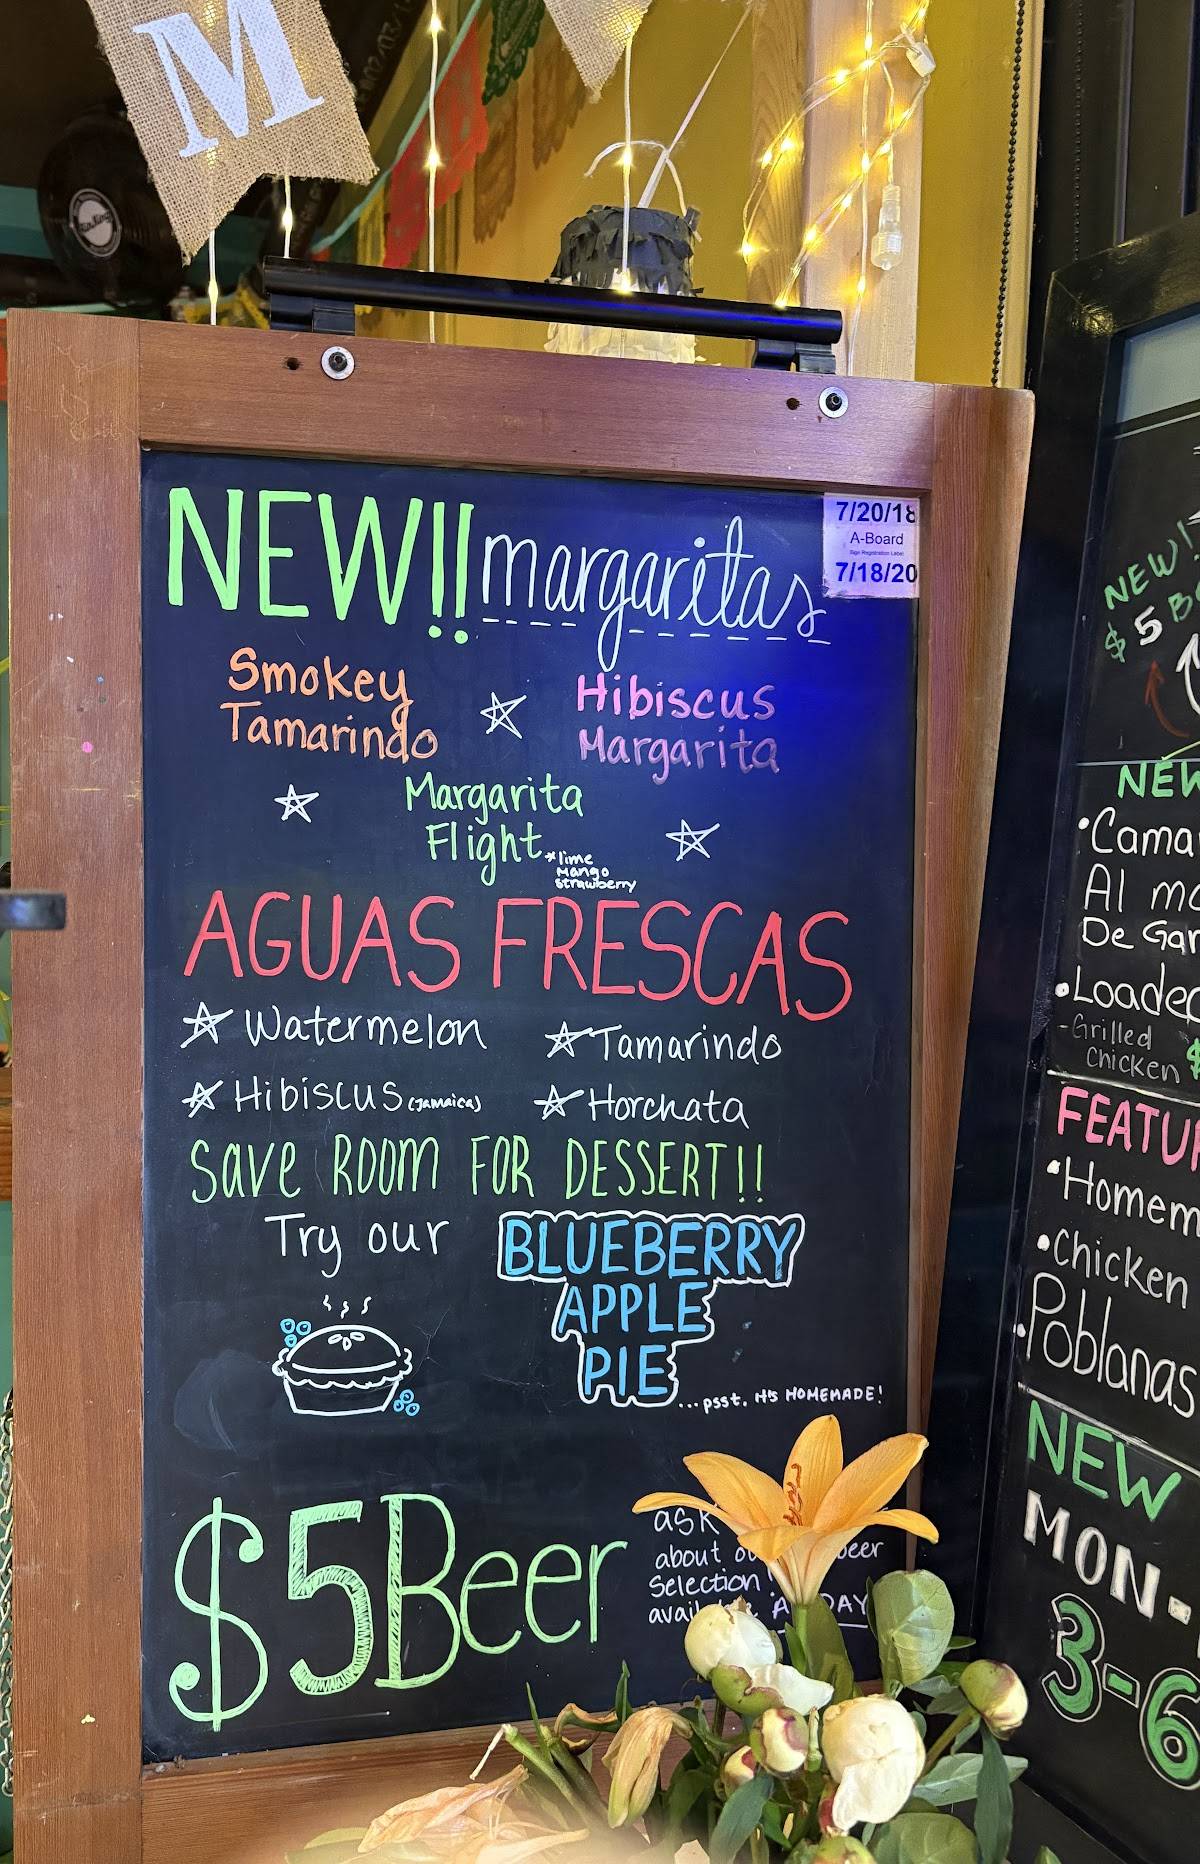 M
NEW!! margaritas
7/20/18
A-Board
Sign Registration Label
7/18/20
Smokey
Tamarindo
Hibiscus
Margarita
Margarita
Flight
*lime
Mango
strawberry
AGUAS FRESCAS
Watermelon
Tamarindo
Hibiscus (Jamaica)
Horchata
Save ROOM FOR DESSERT!!
Try our
BLUEBERRY
APPLE
PIE
...psst. it's HOMEMADE!
$5 Beer
ask
about beer
Selection
DAY
NEW
$5
NEW
Al
De
Loaded
-Grilled
Chicken $
Chicken
Poblanas
NEW
MON-
3-6